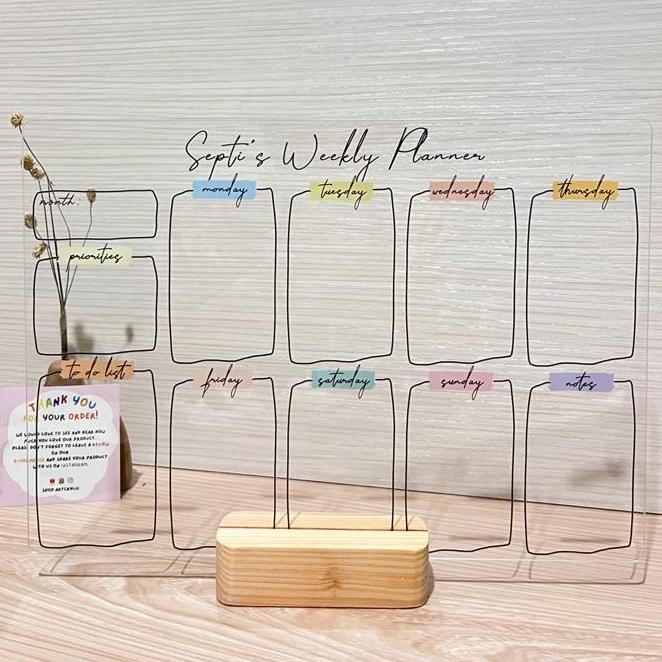 Septi's Weekly Planner
month:
monday
tuesday
wednesday
thursday
priorities
to do list
friday
saturday
sunday
notes
THANK YOU
FOR YOUR ORDER!
WE WOULD LOVE TO SEE AND HEAR HOW
MUCH YOU LOVE OUR PRODUCT.
PLEASE DON'T FORGET TO LEAVE A REVIEW
ON OUR
AND SHARE YOUR PRODUCT
WITH US ON INSTAGRAM